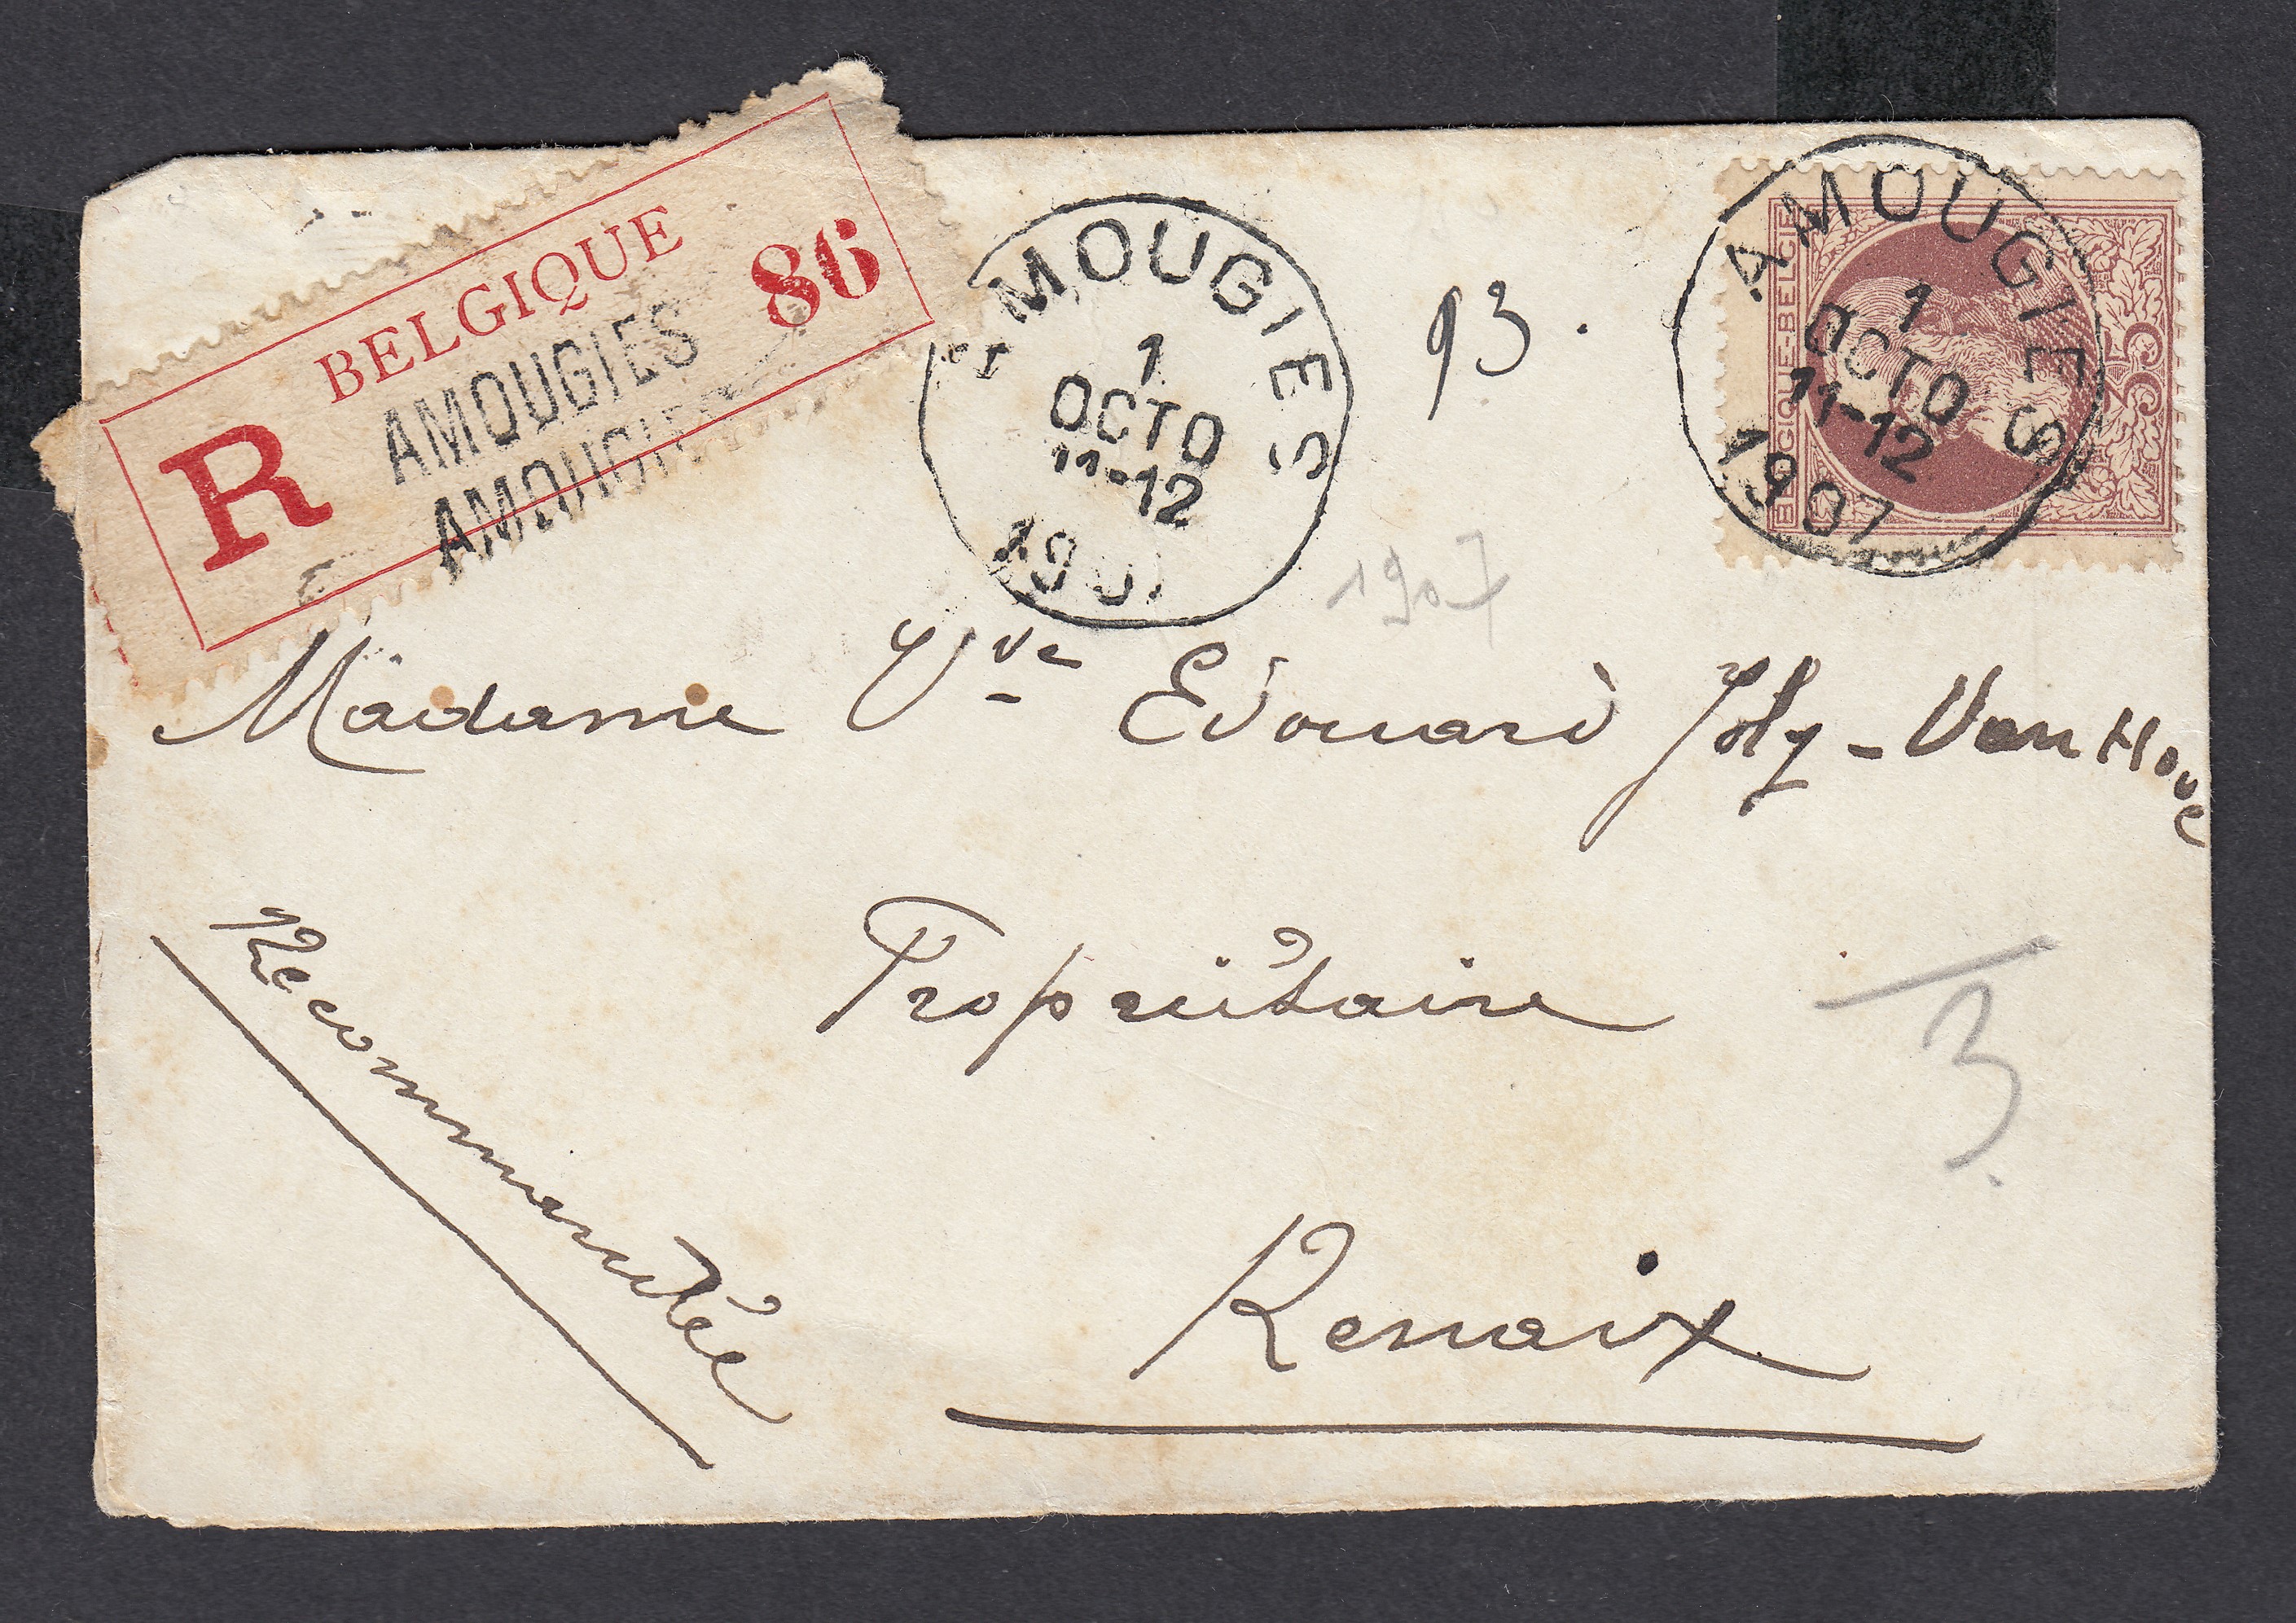 BELGIQUE
R
86
AMOUGIES
AMOUGIES
AMOUGIES
1
OCTO
11-12
1907
93.
AMOUGIES
1
OCTO
11-12
1907
BELGIQUE-BELGIE
35
1907
Madame Vve Edouard Joly - Van Hove
Propriétaire
3
Recommandée
Renaix